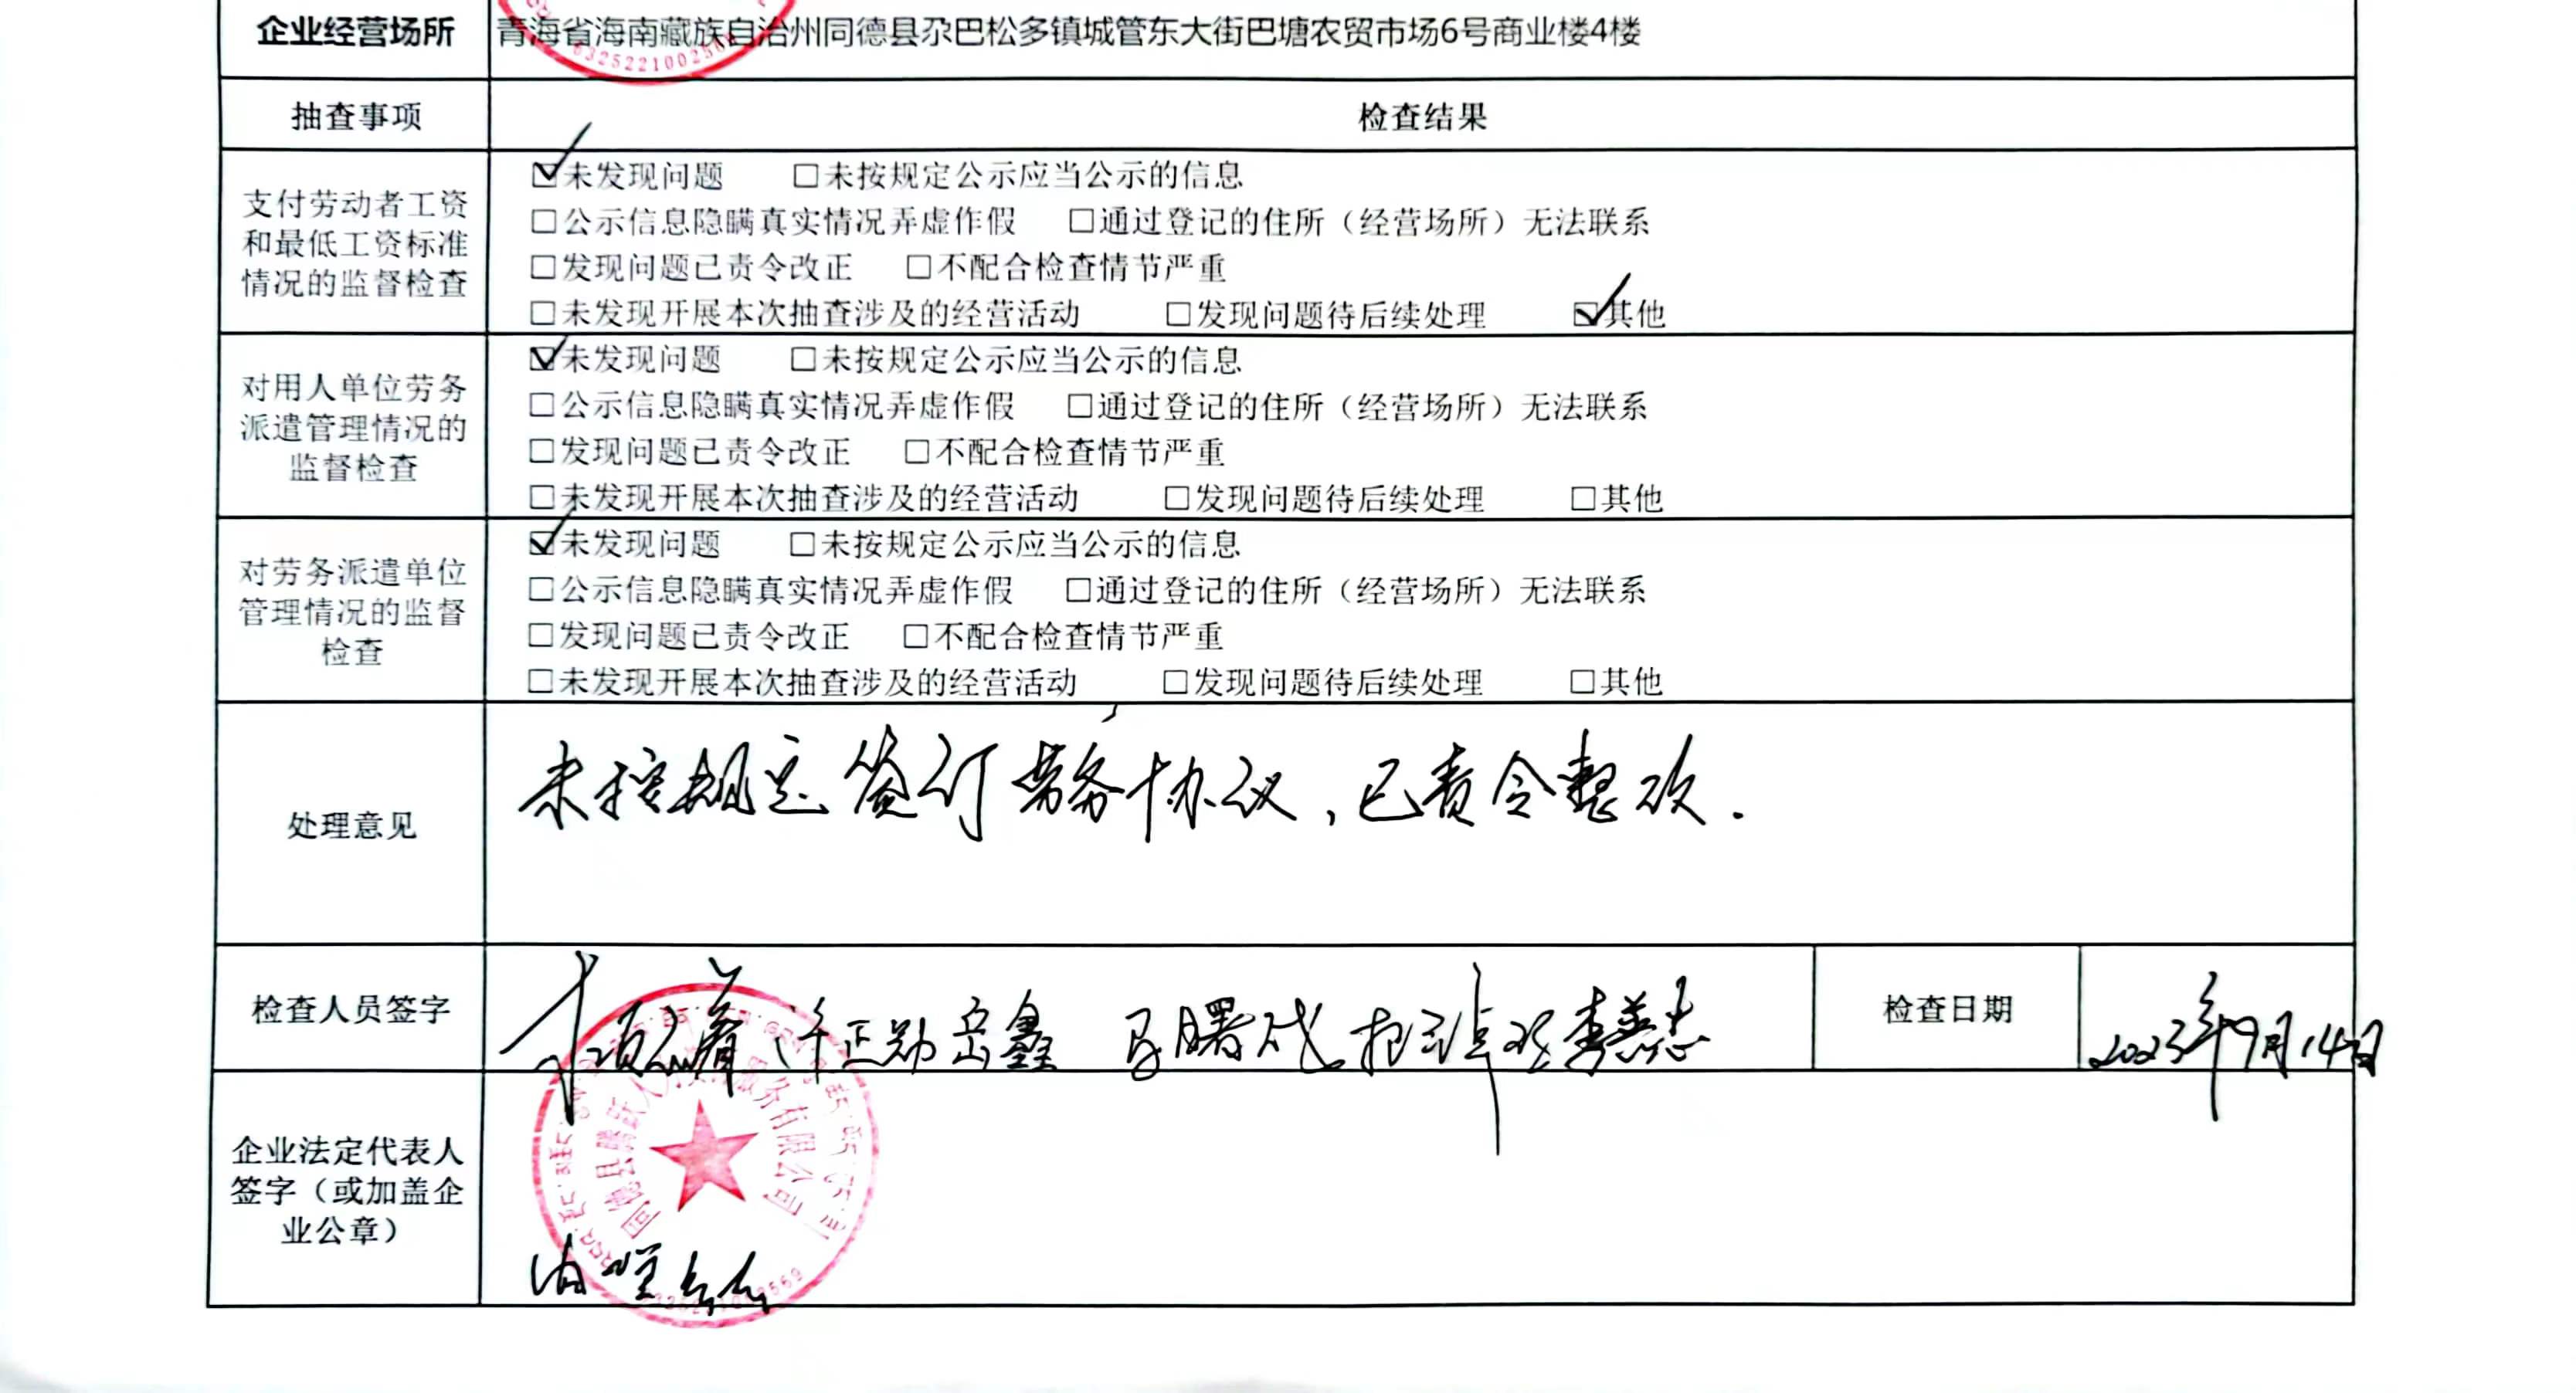 企业经营场所 青海省海南藏族自治州同德县尕巴松多镇城管东大街巴塘农贸市场6号商业楼4楼
抽查事项 检查结果
支付劳动者工资
和最低工资标准
情况的监督检查
☑未发现问题 □未按规定公示应当公示的信息
□公示信息隐瞒真实情况弄虚作假 □通过登记的住所（经营场所）无法联系
□发现问题已责令改正 □不配合检查情节严重
□未发现开展本次抽查涉及的经营活动 □发现问题待后续处理 ☑其他
对用人单位劳务
派遣管理情况的
监督检查
☑未发现问题 □未按规定公示应当公示的信息
□公示信息隐瞒真实情况弄虚作假 □通过登记的住所（经营场所）无法联系
□发现问题已责令改正 □不配合检查情节严重
□未发现开展本次抽查涉及的经营活动 □发现问题待后续处理 □其他
对劳务派遣单位
管理情况的监督
检查
☑未发现问题 □未按规定公示应当公示的信息
□公示信息隐瞒真实情况弄虚作假 □通过登记的住所（经营场所）无法联系
□发现问题已责令改正 □不配合检查情节严重
□未发现开展本次抽查涉及的经营活动 □发现问题待后续处理 □其他
处理意见
未按规定签订劳务协议，已责令整改.
检查人员签字 许正勋 岳鑫 马曙成 李善忠
检查日期 2023年9月14日
企业法定代表人
签字（或加盖企
业公章）
服务有限公司